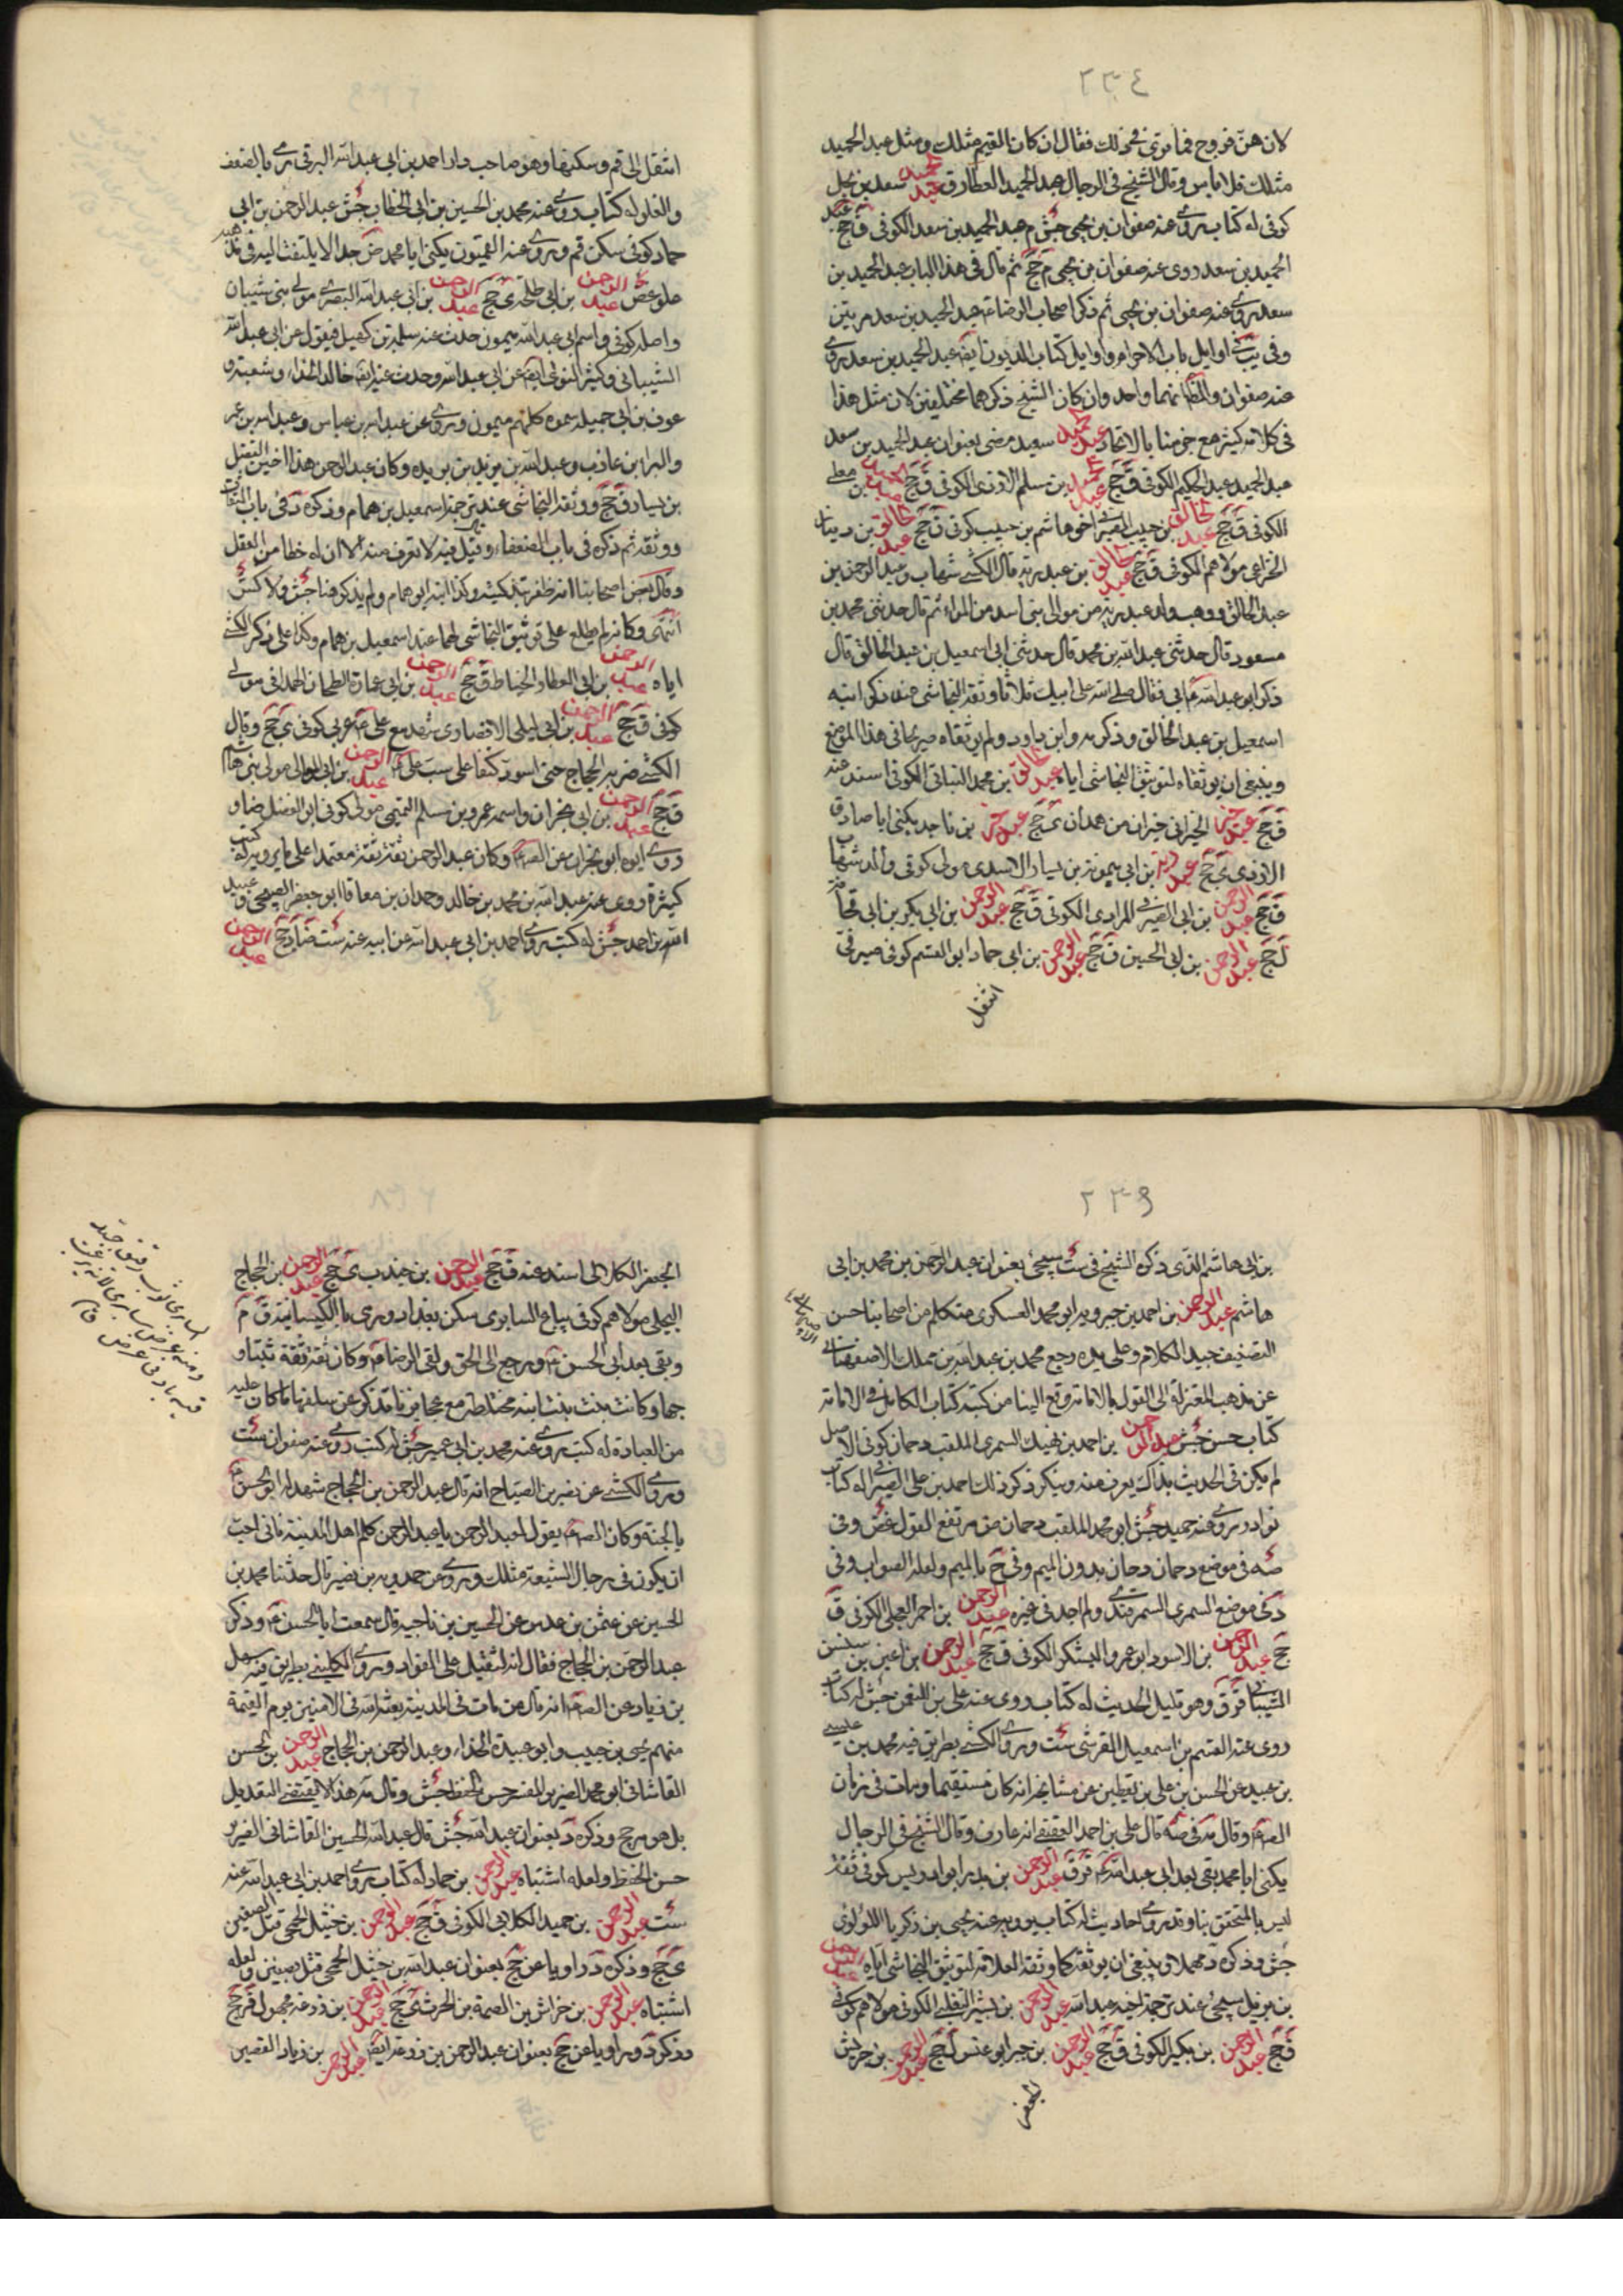 ٢٣٤
لان هن فروج فما ترى فى ذلك فقال ان كان القيم مثلك ومثل عبد الحميد
مثلك فلا باس وقال الشيخ فى الرجال عبد الحميد العطار ق عبد الحميد سعد بن
كوفى له كتاب روى عنه صفوان بن يحيى جش م عبد الحميد بن سعد الكوفى ق جخ عبد
الحميد بن سعد روى عنه صفوان بن يحيى م جخ ثم قال فى هذا الباب عبد الحميد بن
سعد روى عنه صفوان بن يحيى ثم ذكر اصحاب الرضا عبد الحميد بن سعد مرتين
وفى يب فى اوايل باب الاحرام واوايل كتاب الديون ايضا عبد الحميد بن سعد روى
عنه صفوان والظ انهما واحد وان كان الشيخ ذكرهما مختلفين لان مثل هذا
فى كلامه كثير مع جزمنا بالاتحاد عبد الحميد سعيد مضى بعنوان عبد الحميد بن سعد
عبد الحميد عبد الحكيم الكوفى ق جخ عبد بن مسلم الازدى الكوفى ق جخ بن معلى
الكوفى ق جخ عبد الخالق بن حبيب الصيرفى اخو هاشم بن حبيب كوفى ق جخ عبد الخالق بن دينار
الخزاعى مولاهم الكوفى ق جخ عبد الخالق بن عبد ربه قال الكشى شهاب وعبد الرحمن بن
عبد الخالق ووهب ولد عبد ربه من موالى بنى اسد من الموالى ثم قال حدثنى محمد بن
مسعود قال حدثنى عبد الله بن محمد قال حدثنى ابى اسمعيل بن عبد الخالق قال
ذكر ابو عبد الله ع ابى فقال صلى الله على ابيك ثلاثا وثقه النجاشى عند ذكر ابنه
اسمعيل بن عبد الخالق وذكره وابن داود ولم يوثقاه صريحا فى هذا الموضع
وينبغى ان يوثقاه لتوثيق النجاشى اياه عبد الخالق بن محمد البنانى الكوفى اسند عنه
ق جخ عبد خير الخيرانى خيران من همدان ى جخ عبد خير بن ناجد يكنى ابا صادق
الازدى ى جخ عبد ربه ابن ابى ميمونة بن يسار الاسدى مولى كوفى والد شهاب
ق جخ عبد الرحمن بن ابى الصيرفى المرادى الكوفى ق جخ عبد الرحمن بن ابى بكر بن ابى قحافه
ل جخ عبد الرحمن بن ابى الحسين ق جخ عبد الرحمن بن ابى حماد ابو القسم كوفى صيرفى
انتقل
انتقل الى قم وسكنها وهو صاحب دار احمد بن ابى عبد الله البرقى رمى بالضعف
والغلو له كتاب روى عنه محمد بن الحسين بن ابى الخطاب جش عبد الرحمن بن ابى
حماد كوفى سكن قم وروى عنه القميون يكنى ابا محمد ض جدا لا يلتفت اليه فى مذهبه
غلو غض عبد الرحمن بن ابى طلحة ى جخ عبد الرحمن بن ابى عبد الله البصرى مولى بنى شيبان
واصله كوفى واسم ابى عبد الله ميمون حدث عنه سلمة بن كهيل فيقول عن ابى عبد الله
الشيبانى وكثير النوا ايضا عن ابى عبد الله وحدث عنه ايضا خالد الحذاء وشعبة و
عوف بن ابى جميلة سموه كلهم ميمون وروى عن عبد الله بن عباس وعبد الله بن عمر
والبرا بن عازب وعبد الله بن بريده وكان عبد الرحمن هذا اختن الفضيل
بن يسار ق جخ ووثقه النجاشى عند ترجمة اسمعيل بن همام وذكره د فى باب الثقات
ووثقه ثم ذكره فى باب الضعفاء وقيل فيه لا نعرف منه الا ان له خطا من العقل
وقال بعض اصحابنا انه ظفر بتذكيته وكذا ابنه ابو همام ولم يذكر هنا جش ولا كش
انتهى وكانه لم يطلع على توثيق النجاشى لهما عند اسمعيل بن همام وكذا على ذكر الكشى
اياه عبد الرحمن بن ابى العطار الخياط ق جخ عبد الرحمن بن ابى عمارة الطحان الهمدانى مولى
كوفى ق جخ عبد الرحمن بن ابى ليلى الانصارى شهد مع على ع عربى كوفى ى جخ وقال
الكشى ضربه الحجاج حتى اسود كتفاه على سب على ع عبد الرحمن بن ابى الموالى مولى بنى هاشم
ق جخ عبد الرحمن بن ابى نجران واسمه عمرو بن مسلم التميمى مولى كوفى ابو الفضل ضا و
روى ابوه ابو نجران عن الص ع وكان عبد الرحمن ثقة ثقة معتمدا على ما يرويه له كتب
كثيرة روى عنه عبد الله بن محمد بن خالد وحمدان بن معافا ابو جعفر الصبيحى وعبيد
الله بن احمد جش له كتب روى احمد بن ابى عبد الله عن ابيه عنه ست ضا د جخ عبد الرحمن
٢٣٥
بن ابى هاشم الذى ذكره الشيخ فى ست سيجئ بعنوان عبد الرحمن بن محمد بن ابى
هاشم عبد الرحمن بن احمد بن جبرويه ابو محمد العسكرى متكلم من اصحابنا حسن
التصنيف جيد الكلام وعلى يده رجع محمد بن عبد الله بن مملك الاصفهانى
عن مذهب المعتزلة الى القول بالامامة وقع الينا من كتبه كتاب الكامل فى الامامة
كتاب حسن جش عبد الرحمن بن احمد بن نهيك السمرى الملقب دحمان كوفى الاصل
لم يكن فى الحديث بذاك يعرف منه وينكر ذكر ذلك احمد بن على السيرافى له كتاب
نوادر روى عنه حميد جش ابو محمد الملقب دحمان ض مرتفع القول غض وفى
صه فى موضع دحمان دحان بدون الميم وفى ح بالميم ولعله الصواب وفى
د فى موضع السمرى السمرقندى ولم اجد فى غيره عبد الرحمن بن احمر العجلى الكوفى ق
جخ عبد الرحمن بن الاسود ابو عمرو اليشكرى الكوفى ق جخ عبد الرحمن بن اعين بن سنسن
الشيبانى قر ق وهو قليل الحديث له كتاب روى عنه على بن النعمن جش له كتاب
روى عنه القسم بن اسمعيل القرشى ست وروى الكشى بطريق فيه محمد بن عيسى
بن عبيد عن الحسن بن على بن يقطين عن مشايخه انه كان مستقيما ومات فى زمان
الص ع وقال مه فى صه قال على بن احمد العقيقى انه عارف وقال الشيخ فى الرجال
يكنى ابا محمد بقى بعد ابى عبد الله ع قر ق عبد الرحمن بن بدر ابو ادريس كوفى ثقة
ليس بالمتحقق بنا وقد روى احاديث له كتاب يرويه عنه يحيى بن زكريا اللؤلؤى
جش وذكره د مهملا وينبغى ان يوثقه كما وثقه العلامة لتوثيق النجاشى اياه عبد الرحمن
بن بديل سيجئ عند ترجمة اخيه عبد الله عبد الرحمن بن بشير التغلبى الكوفى مولاهم كوفى
ق جخ عبد الرحمن بن بكير الكوفى ق جخ عبد الرحمن بن جبر ابو عبس ل جخ عبد الرحمن بن حريش
الجعفر
الجعفر الكلابى اسند عنه ق جخ عبد الرحمن بن جندب ى جخ عبد الرحمن بن الحجاج
البجلى مولاهم كوفى بياع السابرى سكن بغداد ورمى بالكيسانية ق م
وبقى بعد ابى الحسن ع ورجع الى الحق ولقى الرضا ع وكان ثقة ثقة ثبتا و
جها وكانت بنت بنت ابنه مختلطة مع عجايزنا تذكر عن سلفها ما كان عليه
من العبادة له كتب روى عنه محمد بن ابى عمير جش له كتب روى عنه صفوان ست
وروى الكشى عن نصر بن الصباح انه قال عبد الرحمن بن الحجاج شهد له ابو الحسن ع
بالجنة وكان الص ع يقول لعبد الرحمن يا عبد الرحمن كلم اهل المدينة فانى احب
ان يكون فى رجال الشيعة مثلك وروى عن حمدويه بن نصير قال حدثنا محمد بن
الحسين عن عثمن بن عديس عن الحسين بن ناجيه قال سمعت ابا الحسن ع وذكر
عبد الرحمن بن الحجاج فقال انه لثقيل على الفواد وروى الكلينى بطريق فيه سهل
بن زياد عن الص ع انه قال من مات فى المدينة بعثه الله فى الامنين يوم القيمة
منهم يحيى بن حبيب وابو عبيدة الحذاء وعبد الرحمن بن الحجاج عبد الرحمن بن الحسن
القاشانى ابو محمد الضرير المفسر حسن الحفظ جش وقال مه هذا لا يقتضى التعديل
بل هو مرجح وذكره د بعنوان عبد الله جش قال عبد الله الحسين القاشانى الضرير
حسن الحفظ ولعله اشتباه عبد الرحمن بن حماد له كتاب روى احمد بن ابى عبد الله عنه
ست عبد الرحمن بن حميد الكلابى الكوفى ق جخ عبد الرحمن بن خثيل الجمحى قتل بصفين
ى جخ وذكره د راويا عن جخ بعنوان عبد الله بن خثيل الجمحى قتل بصفين ولعله
اشتباه عبد الرحمن بن خراش بن الصمة بن الحرث ى جخ عبد الرحمن بن زرعه مجهول قر جخ
وذكر د وراويا عن جخ بعنوان عبد الرحمن بن زرعة ايضا عبد الرحمن بن زياد القصير